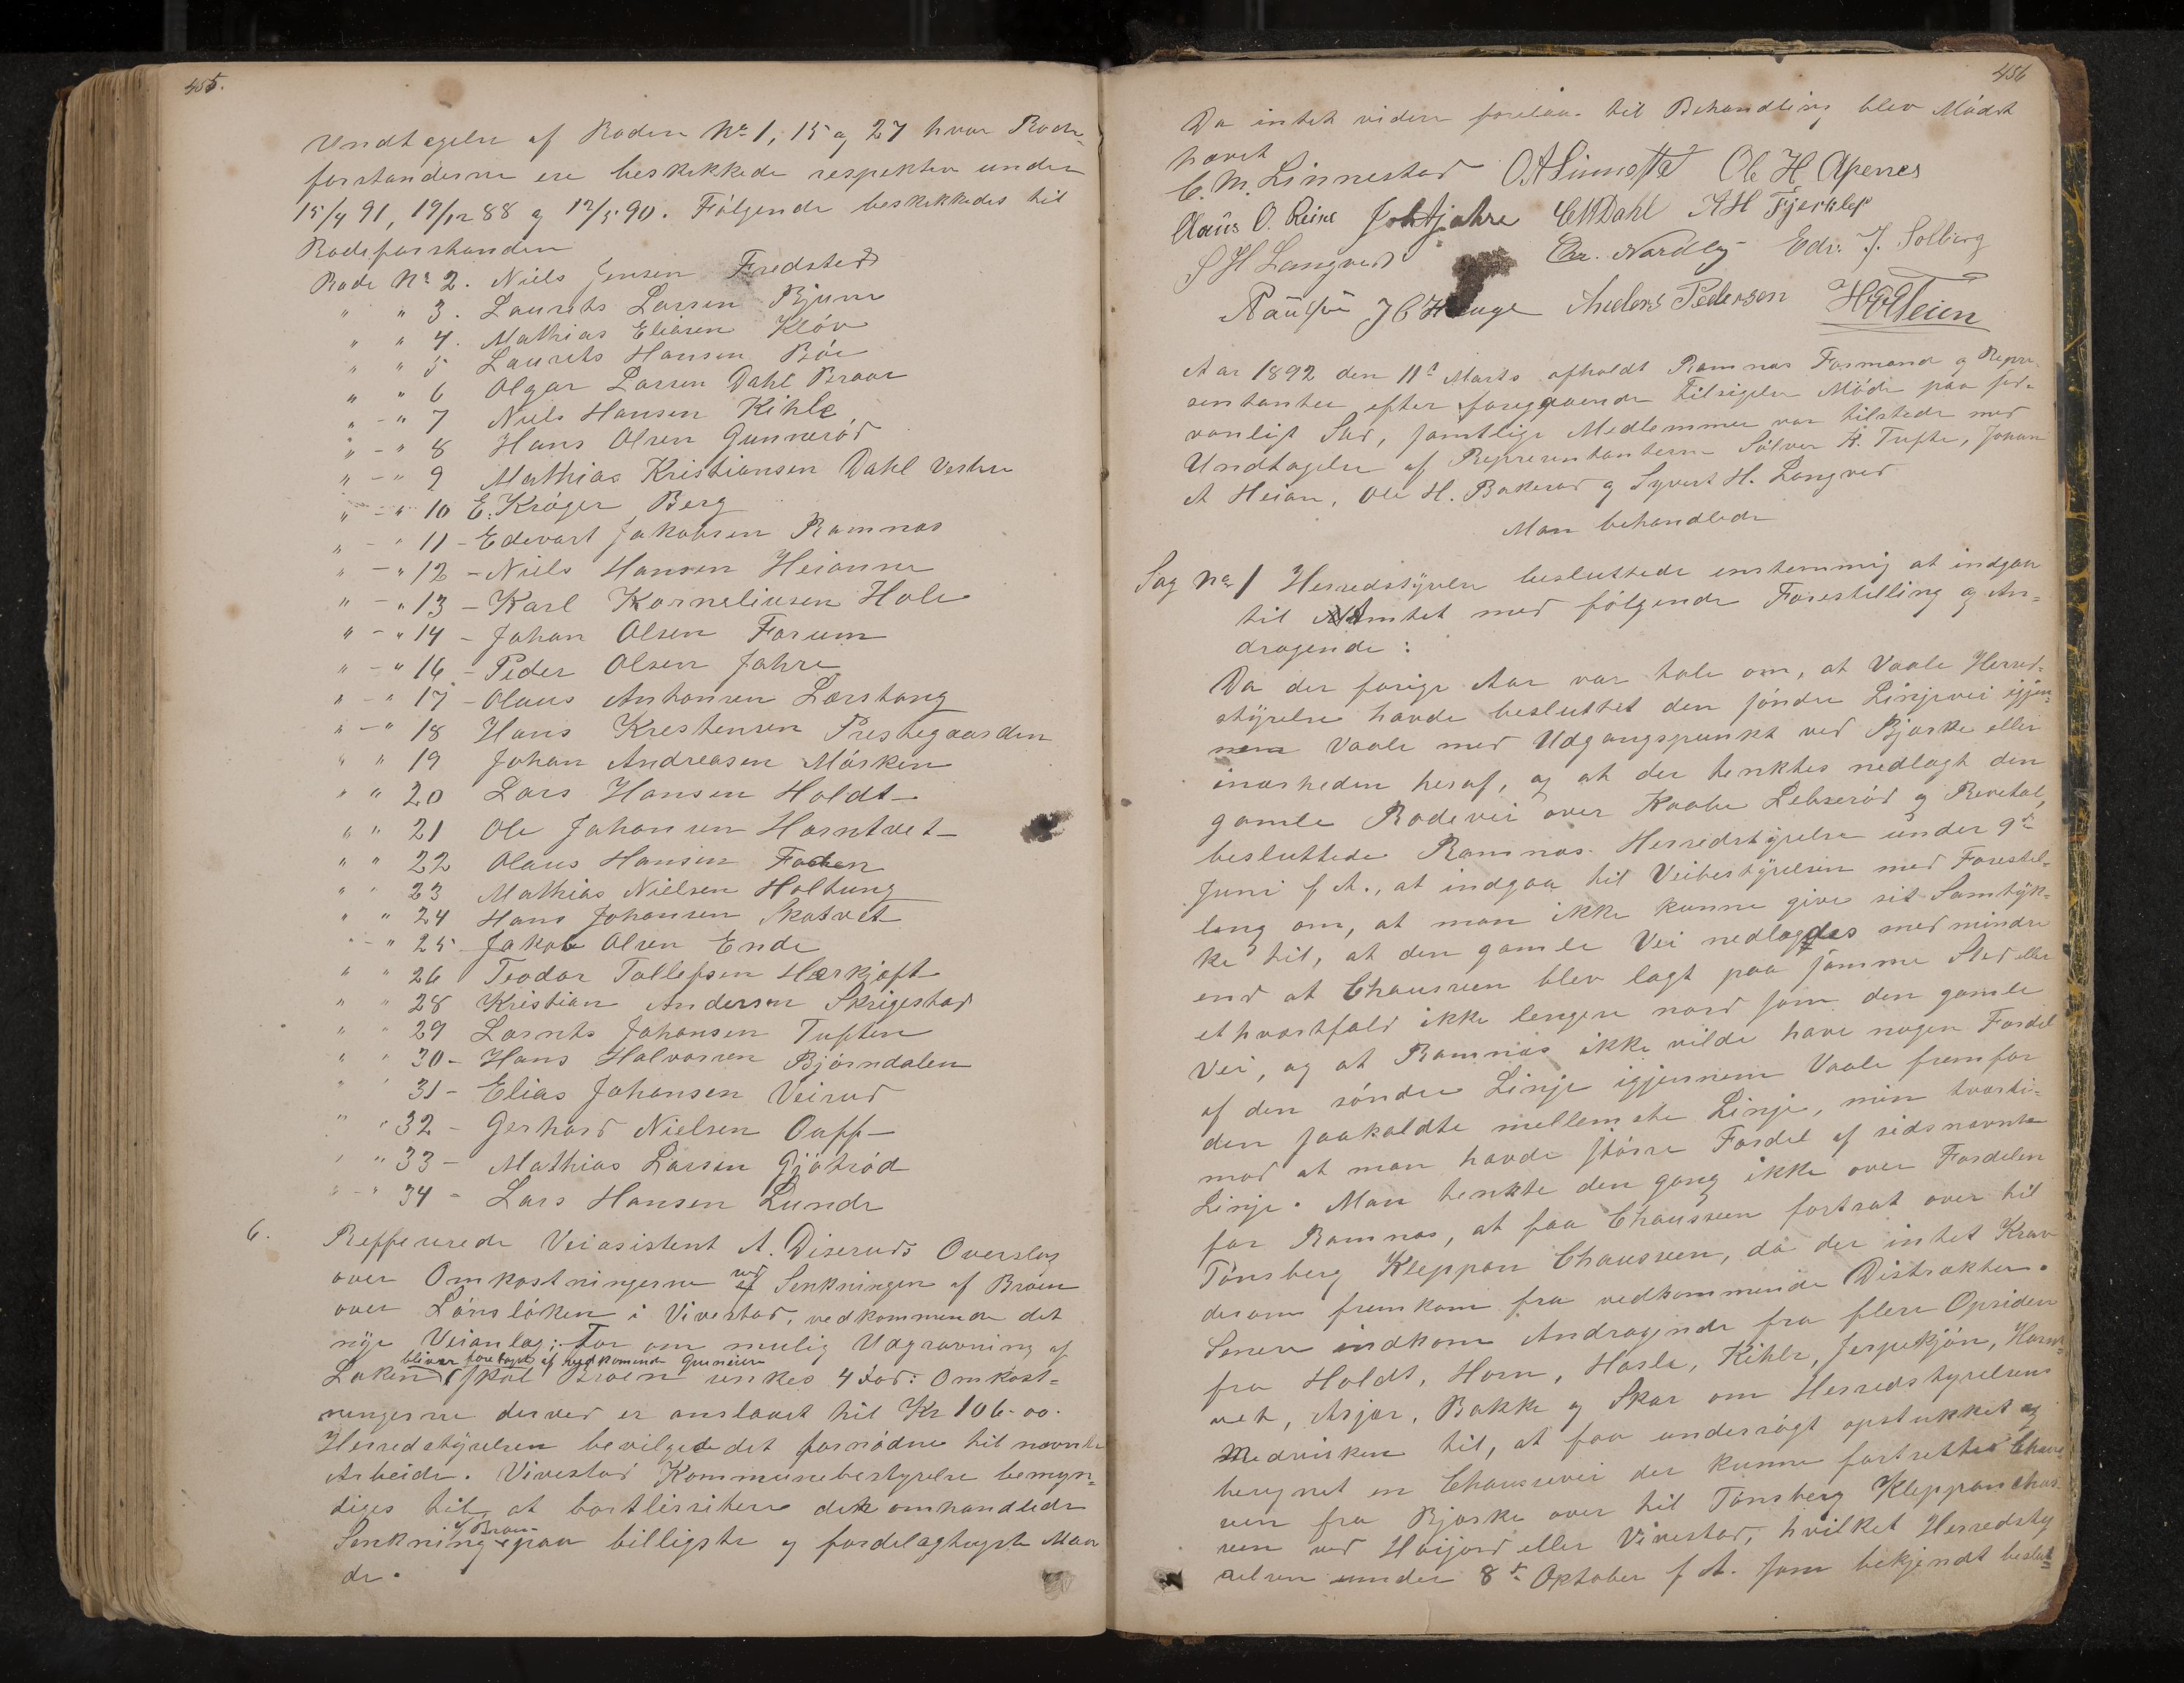 455.
Undtagelse af Roden No 1, 15 og 27 hvor Rode-
forstanderne ere beskikkede respektive under
15/4 91, 19/12 88 og 12/5 90. Følgende beskikkedes til
Rodeforstandere
Rode No 2. Niels Jensen Fredsted
" " 3. Laurits Larsen Bjune
" " 4. Mathias Eliasen Kløv
" " 5 Laurits Hansen Bøe
" " 6 Olgar Larsen Dahl Braar
" - " 7 Niels Hansen Kihle
" - " 8 Hans Olsen Gunnerød
" - " 9 Mathias Kristiansen Dahl Vestre
" - " 10 E. Krøger Berg
" - " 11 - Edevart Jakobsen Ramnæs
" - " 12 - Niels Hansen Heianne
" - " 13 - Karl Korneliusen Hole
" - " 14 - Johan Olsen Forum
" - " 16 - Peder Olsen Jahre
" - " 17 - Olaus Anthonsen Lorstang
" - " 18 Hans Krestensen Prestegaarden
" " 19 Johan Andreasen Mørken
" " 20 Lars Hansen Holdt -
" " 21 Ole Johansen Horntvet -
" " 22 Olaus Hansen Foden
" " 23 Mathias Nielsen Holtung
" " 24 Hans Johansen Skotvet
" - " 25 Jakob Olsen Ende
" " 26 Teodor Tollefsen Herkjøft
" " 28 Kristian Andersen Skrigestad
" " 29 Lornts Johansen Tuften
" " 30 - Hans Halvorsen Bjørndalen
" " 31 - Elias Johansen Veirud
" " 32 - Gerhard Nielsen Ouff -
" " 33 - Mathias Larsen Gjøtrød
" - " 34 - Lars Hansen Lunde
6. Refferrerede Veiasistent A. Diseruds Overslag
over Omkostningerne ved Senkningen af Broen
over Lønsløken i Vivestad, vedkommende det
nye Veianlæg: For om mulig Udgravning af
bliver foretaget af vedkommende Grunneiere
Løken skal Broen senkes 4 Fod: Omkost-
ningerne derved er anslaaet til Kr 106-00.
Herredstyrelsen bevilgede det fornødne til nævnte
Arbeide. Vivestad Kommunebestyrelse bemyn-
diges til, at bortlissitere det omhandlede
af Broen
Senkning paa billigste og fordelagtigste Maa
de.
456
Da intet videre forelaa til Behandling blev Mødet
hævet
C. M. Linnestad O. A. Linnestad Ole H Apenes
Claus O. Reine Joh Jahre C M Dahl A H Fjerklep
S H Langved Chr. Nordby Edv. J. Solberg
Paulsen J C Hauge Anders Pedersen H Olsen
Aar 1892 den 11te Marts afholdt Ramnæs Formænd og Repre-
sentanter efter foregaaende Tilsigelse Møde paa sed-
vanligt Sted, samtlige Medlemmer var tilstede med
Undtagelse af Representanterne Sølver K. Tufte, Johan
A Heian, Ole H. Bakerød og Syvert H. Langved
Man behandlede
Sag No 1 Herredstyrelsen besluttede enstemmig at indgaa
til Amtet med følgende Forestilling og An-
dragende:
Da der forrige Aar var tale om, at Vaale Herred-
styrelse havde besluttet den søndre Linjevei igjen-
nem Vaale med Udgangspunkt ved Bjørke eller
i nærheden heraf, og at der tenktes nedlagt den
gamle Rodevei over Kaabe Lebserød og Revetal,
besluttede Ramnæs Herredstyrelse under 9de
Juni f A., at indgaa til Veibestyrelsen med Forestil-
ling om, at man ikke kunne give sit Samtyk-
ke til, at den gamle Vei nedlagdes med mindre
end at Chauseen blev lagt paa samme Sted eller
ethvertfald ikke lengere nord som den gamle
Vei, og at Ramnæs ikke vilde have nogen Fordel
af den søndre Linje igjennem Vaale fremfor
den saakaldte mellemste Linje, men tverti-
mod at man havde større Fordel af sidsnævnte
Linje. Man tenkte den gang ikke over Fordelen
for Ramnæs, at faa Chauseen fortsat over til
Tønsberg Kleppan Chauseen, da der intet Krav
derom fremkom fra vedkommende Distrakter.
Senere indkom Andragende fra flere Opsidere
fra Holdt, Horn, Hasle, Kihle, Jerpekjøn, Hornt-
vet, Asjør, Bakke og Skar om Herredstyrelsens
Medvirken til, at faa undersøgt opstukket og
beregnet en Chausevei der kunne fortsettes Chau-
seen fra Bjørke over til Tønsberg Kleppanchau-
seen ved Høijord eller Vivestad, hvilket Herredsty
relsen under 8de Oktober f A. som bekjendt beslut-